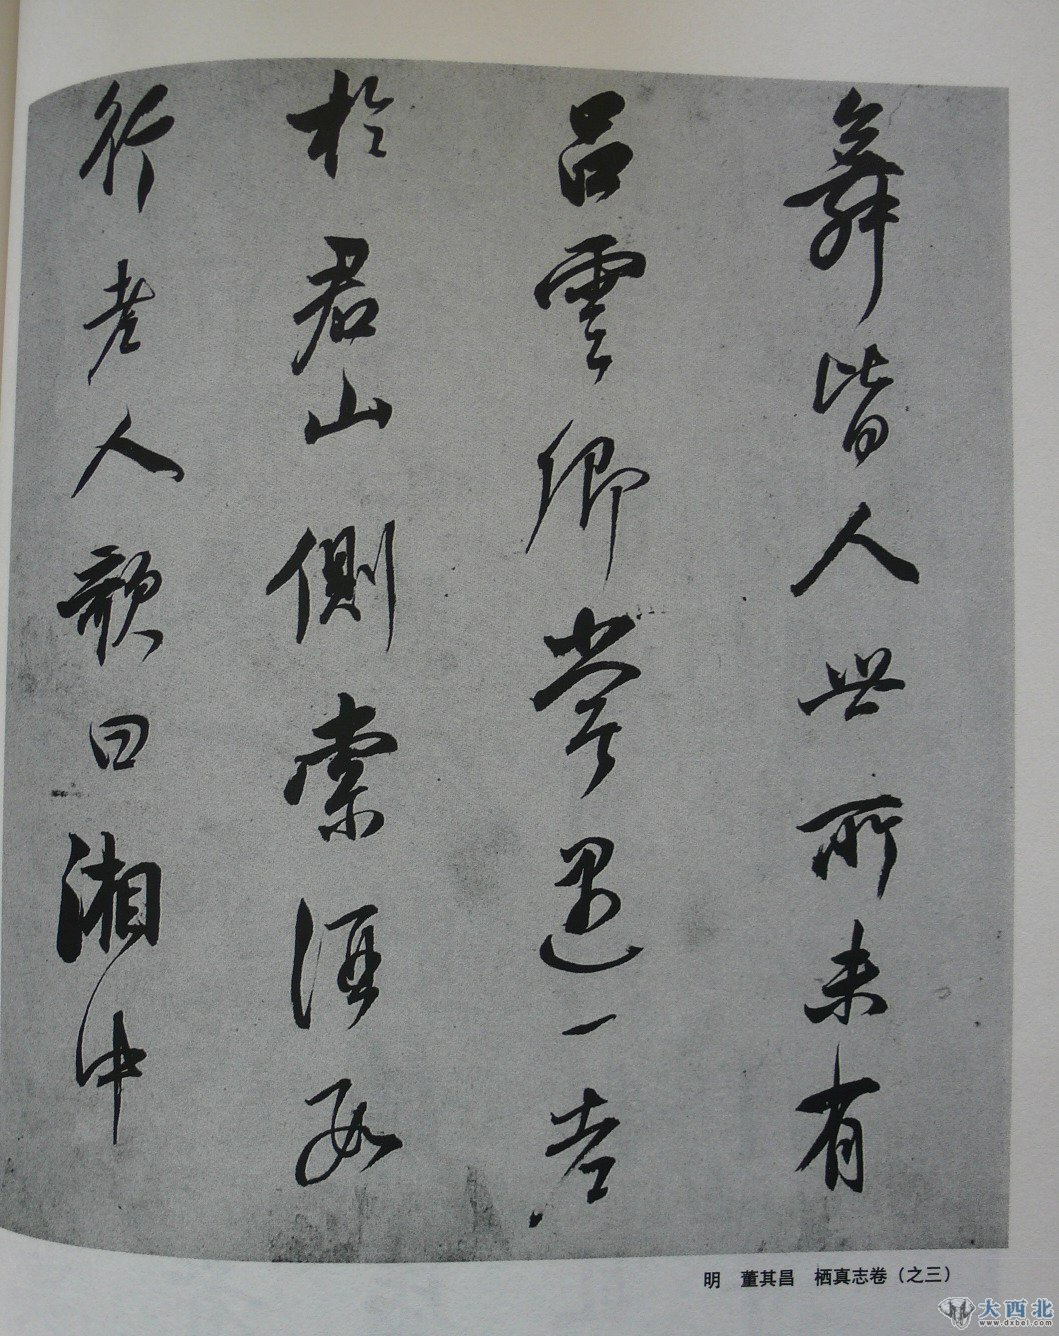 舞皆人世所未有
呂雲卿嘗遇一老
於君山側索酒數
行老人歌曰湘中
明 董其昌 栖真志卷（之三）
大西北
www.dxbei.com